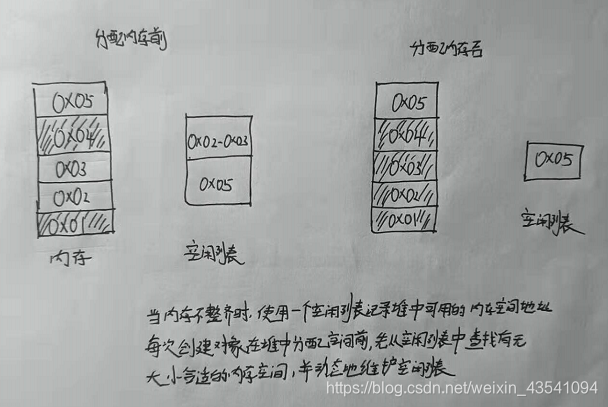 分配内存前
分配内存后
0X05
0X04
0X03
0X02
0X01
内存
0X02-0X03
0X05
空闲列表
0X05
0X04
0X03
0X02
0X01
内存
0X05
空闲列表
当内存不整齐时，使用一个空闲列表记录堆中可用的内存空间地址
每次创建对象在堆中分配空间前，先从空闲列表中查找有无
大小合适的内存空间，并动态地维护空闲列表
https://blog.csdn.net/weixin_43541094